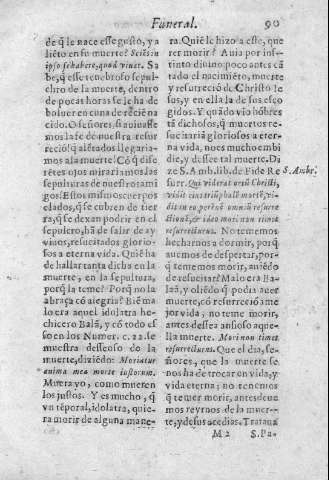 Funeral. 90
de q̃ le nace esse gusto, y a
liẽto en su muerte? Sciẽs in
ipso se habere, quod viuat. Sa
be, q̃ esse tenebroso sepul-
chro de la muerte, dentro
de pocas horas se le ha de
boluer en cuna de reciẽ na
cido. O señores, si auiuasse
mos la fe de nuestra resur
recciõ! q̃ alẽtados llegaria-
mos a la muerte! Cõ q̃ dife
rẽtes ojos mirariamos las
sepulturas de nuestros ami
gos! Estos mismos cuerpos
elados, q̃ se cubren de tier
ra, q̃ se dexan podrir en el
sepulcro, hã de salir de ay
viuos, resucitados glorio-
sos a eterna vida. Quiẽ ha
de hallar tanta dicha en la
muerte, en la sepultura,
porq̃ la teme? Porq̃ no la
abraça cõ alegria? Biẽ ma
lo era aquel idolatra he-
chicero Balã, y cõ todo es
so en los Numer. c. 22. se
muestra desseoso de la
muerte, diziẽdo: Moriatur
anima mea morte iustorum.
Muera yo, como mueren
los justos. Y es mucho, q̃
vn tẽporal, idolatra, quie-
ra morir de alguna mane-
ra. Quiẽ le hizo a esse, que
rer morir? Auia por ins-
tinto diuino poco antes cã
tado el nacimiẽto, muerte
y resurreciõ de Christo Ie
sus, y en ella la de sus esco
gidos. Y quãdo vio hõbres
tã dichosos, q̃ muertos re-
sucitariã gloriosos a eter-
na vida, no es mucho embi
die, y dessee tal muerte. Di
ze S. Amb. lib. de Fide Re
S. Ambr.
sur. Qui viderat ortũ Christi,
vidit eius triũphalẽ mortẽ, vi-
dit in eo perhennẽ omniũ resurre
ctionẽ, & ideo mori non timet
resurrecturus. No tememos
hecharnos a dormir, porq̃
auemos de despertar, por-
q̃ tememos morir, auiẽdo
de resucitar? Malo era Ba-
laã, y oliẽdo q̃ podia auer
muerte, cõ resurrecciõ a me
jor vida, no teme morir,
antes dessea ansioso aque-
lla muerte. Mori non timet
resurrecturus. Que el dia, se-
ñores, que la muerte se
nos ha de trocar en vida, y
vida eterna; no tenemos
q̃ temer morir, antes deue
mos reyrnos de la muer-
te, y de sus acedias. Trataua
M 2 S. Pa-